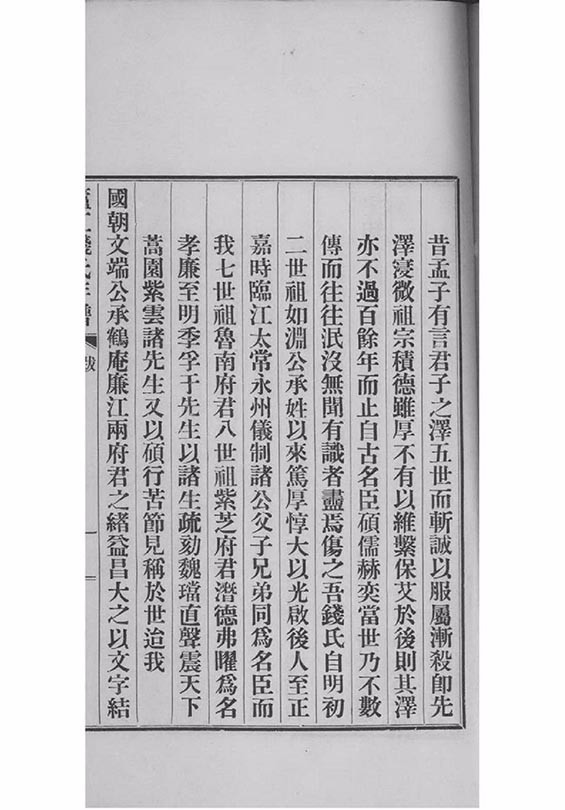 昔孟子有言君子之澤五世而斬誠以服屬漸殺卽先
澤寖微祖宗積德雖厚不有以維繫保艾於後則其澤
亦不過百餘年而止自古名臣碩儒赫奕當世乃不數
傳而往往泯沒無聞有識者盡焉傷之吾錢氏自明初
二世祖如淵公承姓以來篤厚惇大以光啟後人至正
嘉時臨江太常永州儀制諸公父子兄弟同爲名臣而
我七世祖魯南府君八世祖紫芝府君潛德弗曜爲名
孝廉至明季孚于先生以諸生疏劾魏璫直聲震天下
蒿園紫雲諸先生又以碩行苦節見稱於世迨我
國朝文端公承鶴庵廉江兩府君之緒益昌大之以文字結
錢氏年譜 跋 一